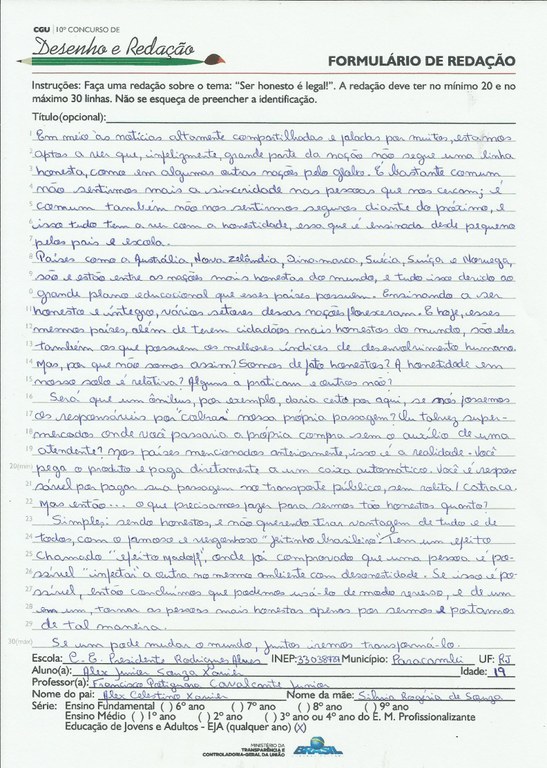 CGU | 10º CONCURSO DE
Desenho e Redação
FORMULÁRIO DE REDAÇÃO
Instruções: Faça uma redação sobre o tema: “Ser honesto é legal!”. A redação deve ter no mínimo 20 e no
máximo 30 linhas. Não se esqueça de preencher a identificação.
Título(opcional):
1 Em meio às notícias altamente compartilhadas e faladas por muitos, estamos
2 aptos a ver que, infelizmente, grande parte da nação não segue uma linha
3 honesta, como em algumas outras nações pelo globo. É bastante comum
4 não sentirmos mais a sinceridade nas pessoas que nos cercam; é
5 comum também não nos sentirmos seguros diante do próximo, e
6 isso tudo tem a ver com a honestidade, essa que é ensinada desde pequeno
7 pelos pais e escola.
8 Países como a Austrália, Nova Zelândia, Dinamarca, Suécia, Suíça e Noruega,
9 são e estão entre as nações mais honestas do mundo, e tudo isso devido ao
10 grande plano educacional que esses países possuem. Ensinando a ser
11 honesto e íntegro, vários setores dessas nações floresceram. E hoje, esses
12 mesmos países, além de terem cidadãos mais honestos do mundo, são eles
13 também os que possuem os melhores índices de desenvolvimento humano.
14 Mas, por que não somos assim? Somos de fato honestos? A honetidade em
15 nosso solo é relativa? Alguns a praticam e outros não?
16 Será que um ônibus, por exemplo, daria certo por aqui, se nós fossemos
17 os responsáveis por "cobrar" nossa própria passagem? Ou talvez super-
18 mercados onde você passaria a própria compra sem o auxílio de uma
19 atendente? Nos países mencionados anteriormente, isso é a realidade. Você
20(min) pega o produto e paga diretamente a um caixa automático. Você é respon
21 sável por pagar sua passagem no transporte público, sem roleta/catraca.
22 Mas então... o que precisamos fazer para sermos tão honestos quanto?
23 Simples: sendo honestos, e não querendo tirar vantagem de tudo e de
24 todos, com o famoso e vergonhoso "jeitinho brasileiro". Tem um efeito
25 chamado "efeito Madoff", onde foi comprovado que uma pessoa é pos-
26 sível "infectar" a outra no mesmo ambiente com desonestidade. Se isso é po-
27 ssível, então concluímos que podemos usá-lo de modo reverso, e de um
28 em um, tornar as pessoas mais honestas apenas por sermos e portarmos
29 de tal maneira.
30(max) Se um pode mudar o mundo, juntos iremos transformá-lo.
Escola: C. E. Presidente Rodrigues Alves INEP: 33038724 Município: Paracambi UF: RJ
Aluno(a): Alex Junior Souza Xavier Idade: 19
Professor(a): Francisco Cavalcante Junior
Nome do pai: Alex Celestino Xavier Nome da mãe: Silvia Rogéria de Souza
Série: Ensino Fundamental ( ) 6º ano ( ) 7º ano ( ) 8º ano ( ) 9º ano
Ensino Médio ( ) 1º ano ( ) 2º ano ( ) 3º ano ou 4º ano do E. M. Profissionalizante
Educação de Jovens e Adultos - EJA (qualquer ano) (X)
MINISTÉRIO DA
TRANSPARÊNCIA E
CONTROLADORIA-GERAL DA UNIÃO
BRASIL